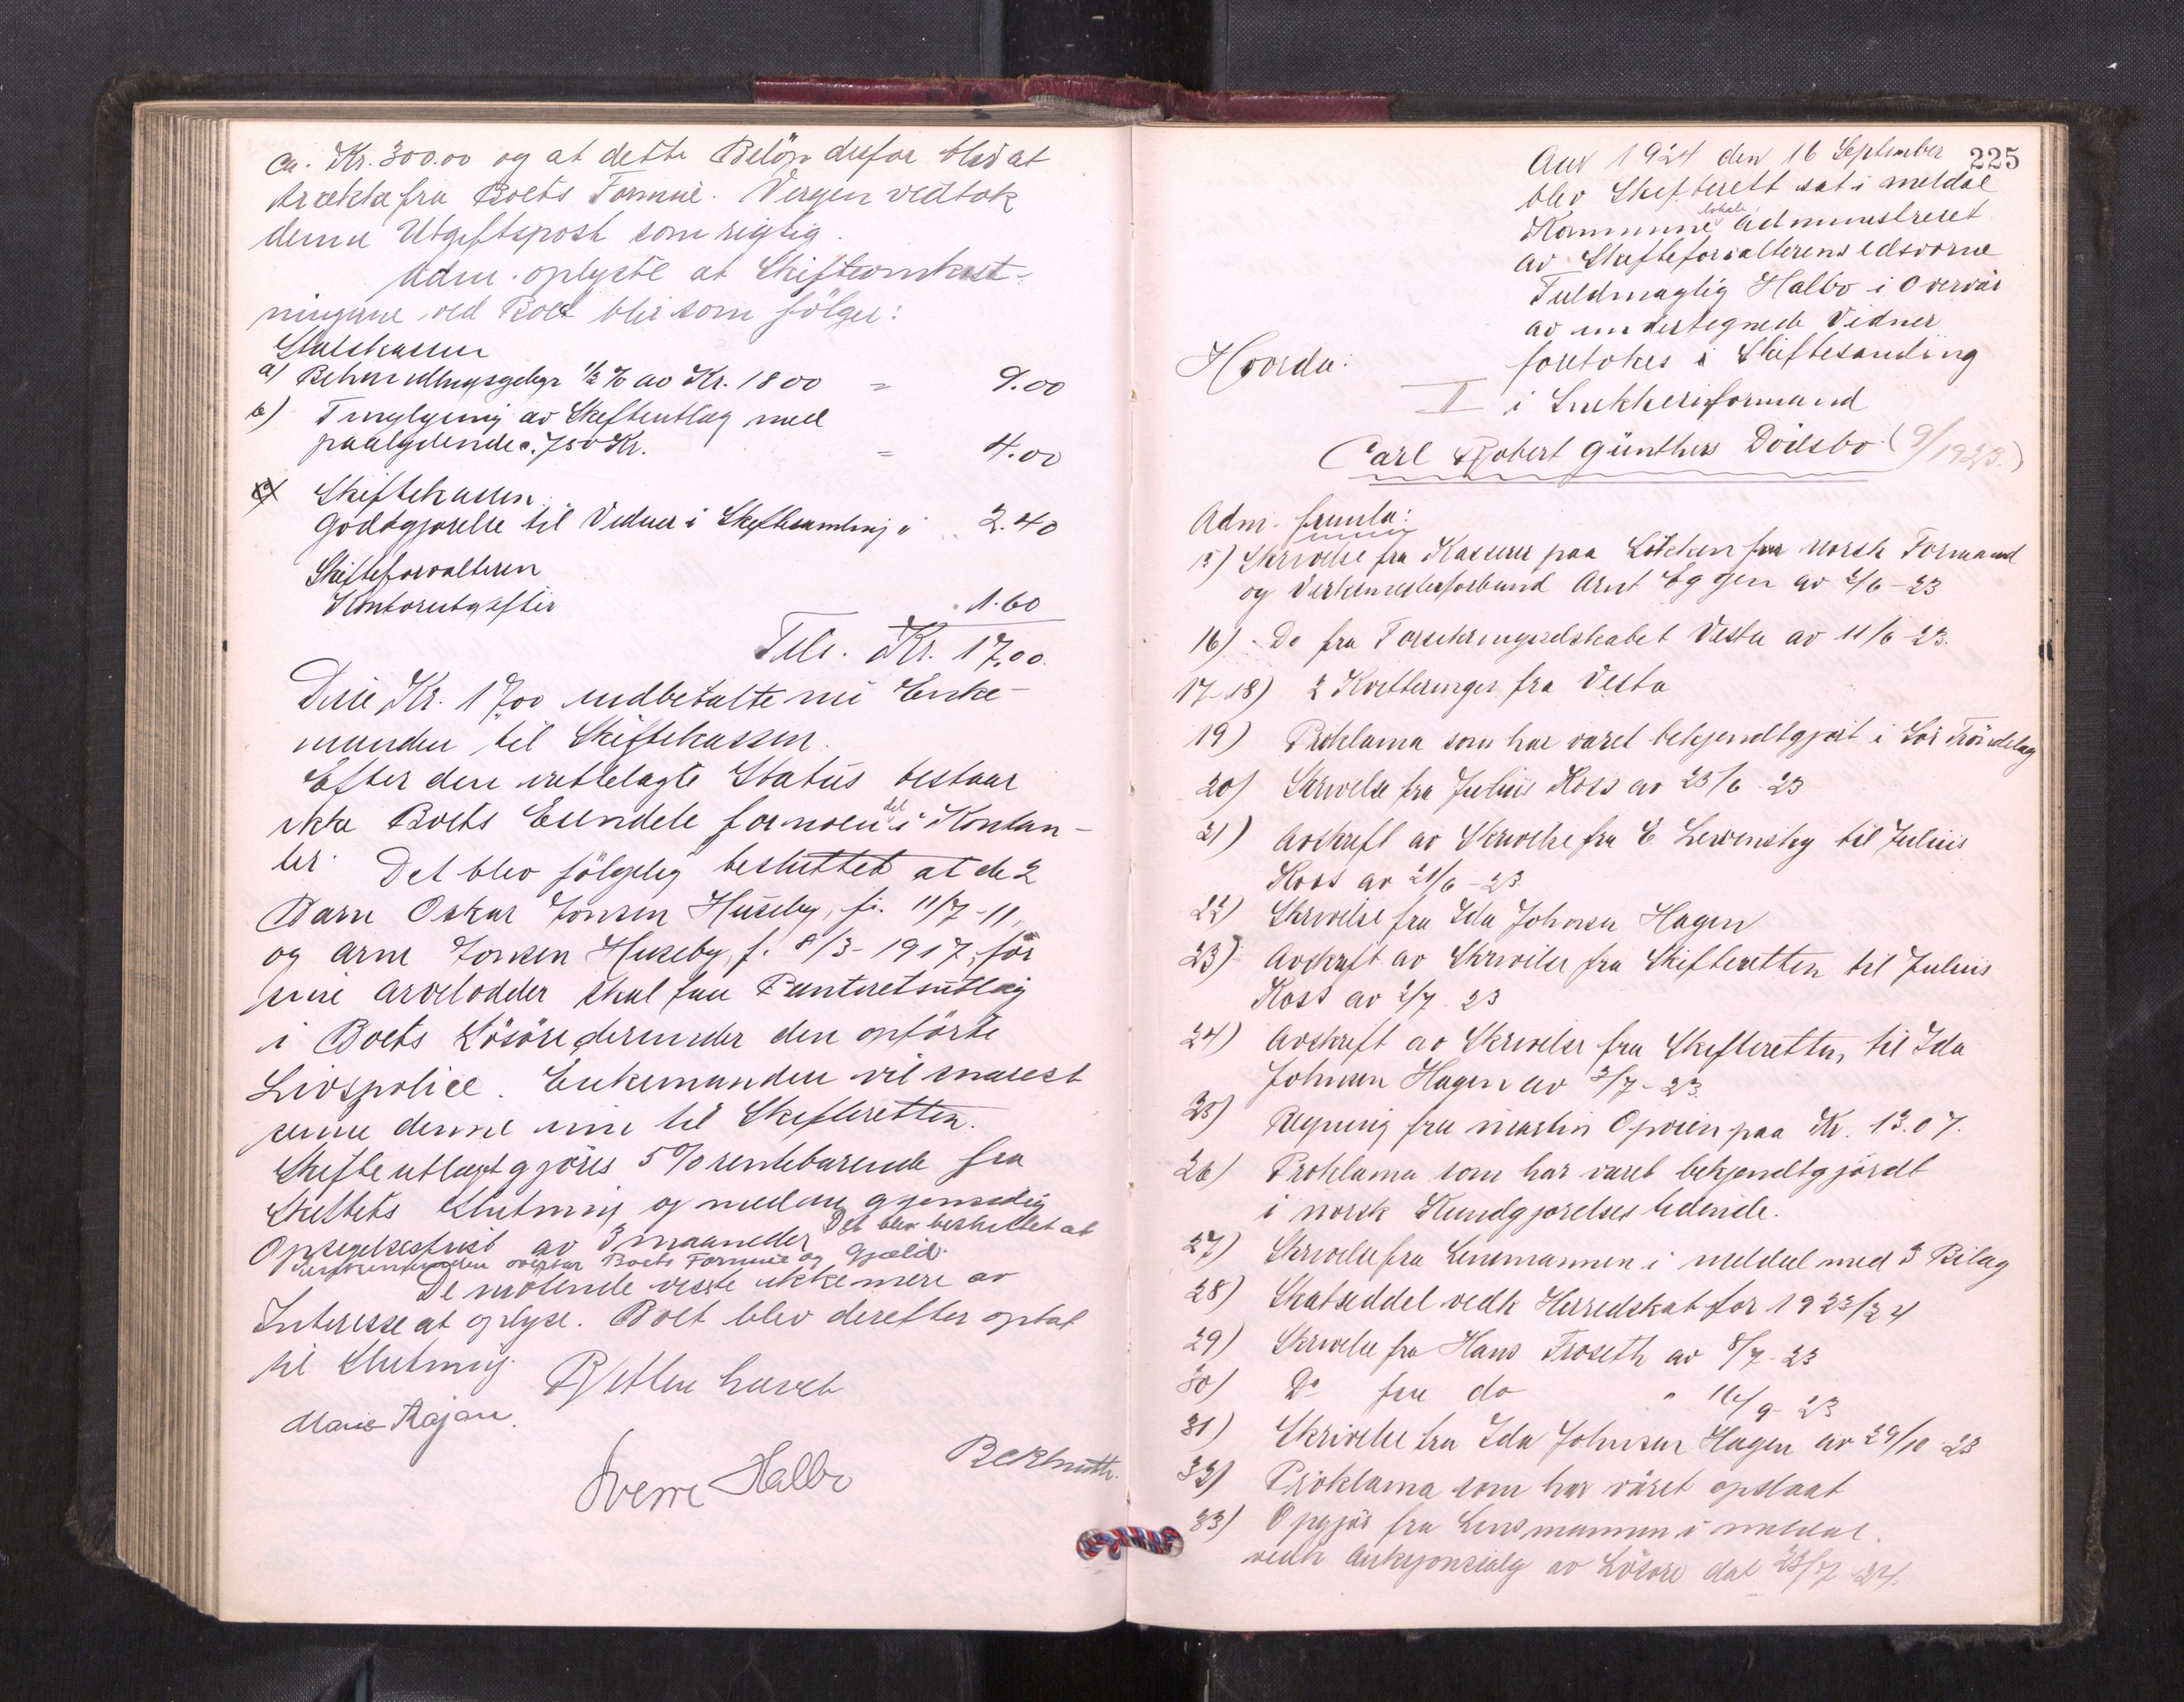 ca. Kr. 300.00 og at dette Beløp derfor blev at
trække fra Boets Formue. Vergen vedtok
denne Utgiftspost som rigtig.
Adm. oplyste at Skifteomkost-
ningerne ved Boet blir som følger:
Statskassen
a) Behandlingsgebyr 1/2 % av Kr. 1800 = 9.00
b) Tinglysning av Skifteutlæg med
paalydende c. 750 Kr. = 4.00
Skiftekassen
Godtgjørelse til Vidner i Skiftesamling " 2.40
Skifteforvalteren
Kontorutgifter 1.60
Tils. Kr. 17.00
Disse Kr. 17.00 indbetalte nu Enke-
manden til Skiftekassen.
Efter den irettelagte Status bestaar
ikke Boets Eiendele for noen del i Kontan-
ter. Det blev følgelig besluttet at de 2
Barn Oskar Jonsen Huseby, f. 11/7-11,
og Arne Jonsen Huseby, f. 8/3-1917, for
sine Arvelodder skal faa Panteretsutlæg
i Boets Løsøre derunder den opførte
Livspolice. Enkemanden vil snarest
sende denne inn til Skifteretten.
Skifteutlægt gjøres 5% rentebærende fra
Skiftets Slutning og med en gjensidig
Opsigelsesfrist av 3 maaneder Det blev besluttet at
Enkemanden overtar Boets Formue og Gjæld.
De møtende visste ikke mere av
Interesse at oplyse. Boet blev derefter optat
til Slutning.
Retten hævet
Marie Rajan.
Sverre Halbo
225
Aar 1924 den 16 September
blev Skifterett sat i Meldal
Kommune lokale administreret
av Skifteforvalterens edsvorne
Fuldmægtig Halbo i Overvær
av undertegnede Vidner
Hvorda: foretokes i Skiftesamling
II i Snekkerformand
Carl Robert Günthers Dödsbo (9/1923.)
Adm. fremla:
15) Skrivelse fra Kasserer paa Løkken for Norsk Formand
og Verkmesterforbund Arnt Eggen av 2/6-23
16) Do fra Forsikringsselskabet Vesta av 11/6-23.
17-18) 2 Kvitteringer fra Vesta
19) Proklama som har været bekjendtgjort i Sør Trøndelag
20) Skrivelse fra Julius Koss av 23/6 23
21) Avskrift av Skrivelse fra E. Lewensky til Julius
Koss av 21/6-23
22) Skrivelse fra Ida Johnsen Hagen
23) Avskrift av Skrivelse fra Skifteretten til Julius
Koss av 2/7 23
24) Avskrift av Skrivelse fra Skifteretten til Ida
Johnsen Hagen av 2/7-23.
25) Regning fra Martin Opøien paa Kr. 13.07.
26) Proklama som har været bekjendtgjordt
i Norsk Kundgjørelsestidende.
27) Skrivelse fra Lensmannen i Meldal med 3 Bilag
28) Skatseddel vedk Herredskat for 1923/24
29) Skrivelse fra Hans Troseth av 8/7-23
30) Do fra do " 16/9-23
31) Skrivelse fra Ida Johnsen Hagen av 29/10 23
32) Proklama som har været opslaat
33) Opgjør fra Lensmannen i Meldal
vedk Auksjonssalg av Løsøre dat 28/7 24.